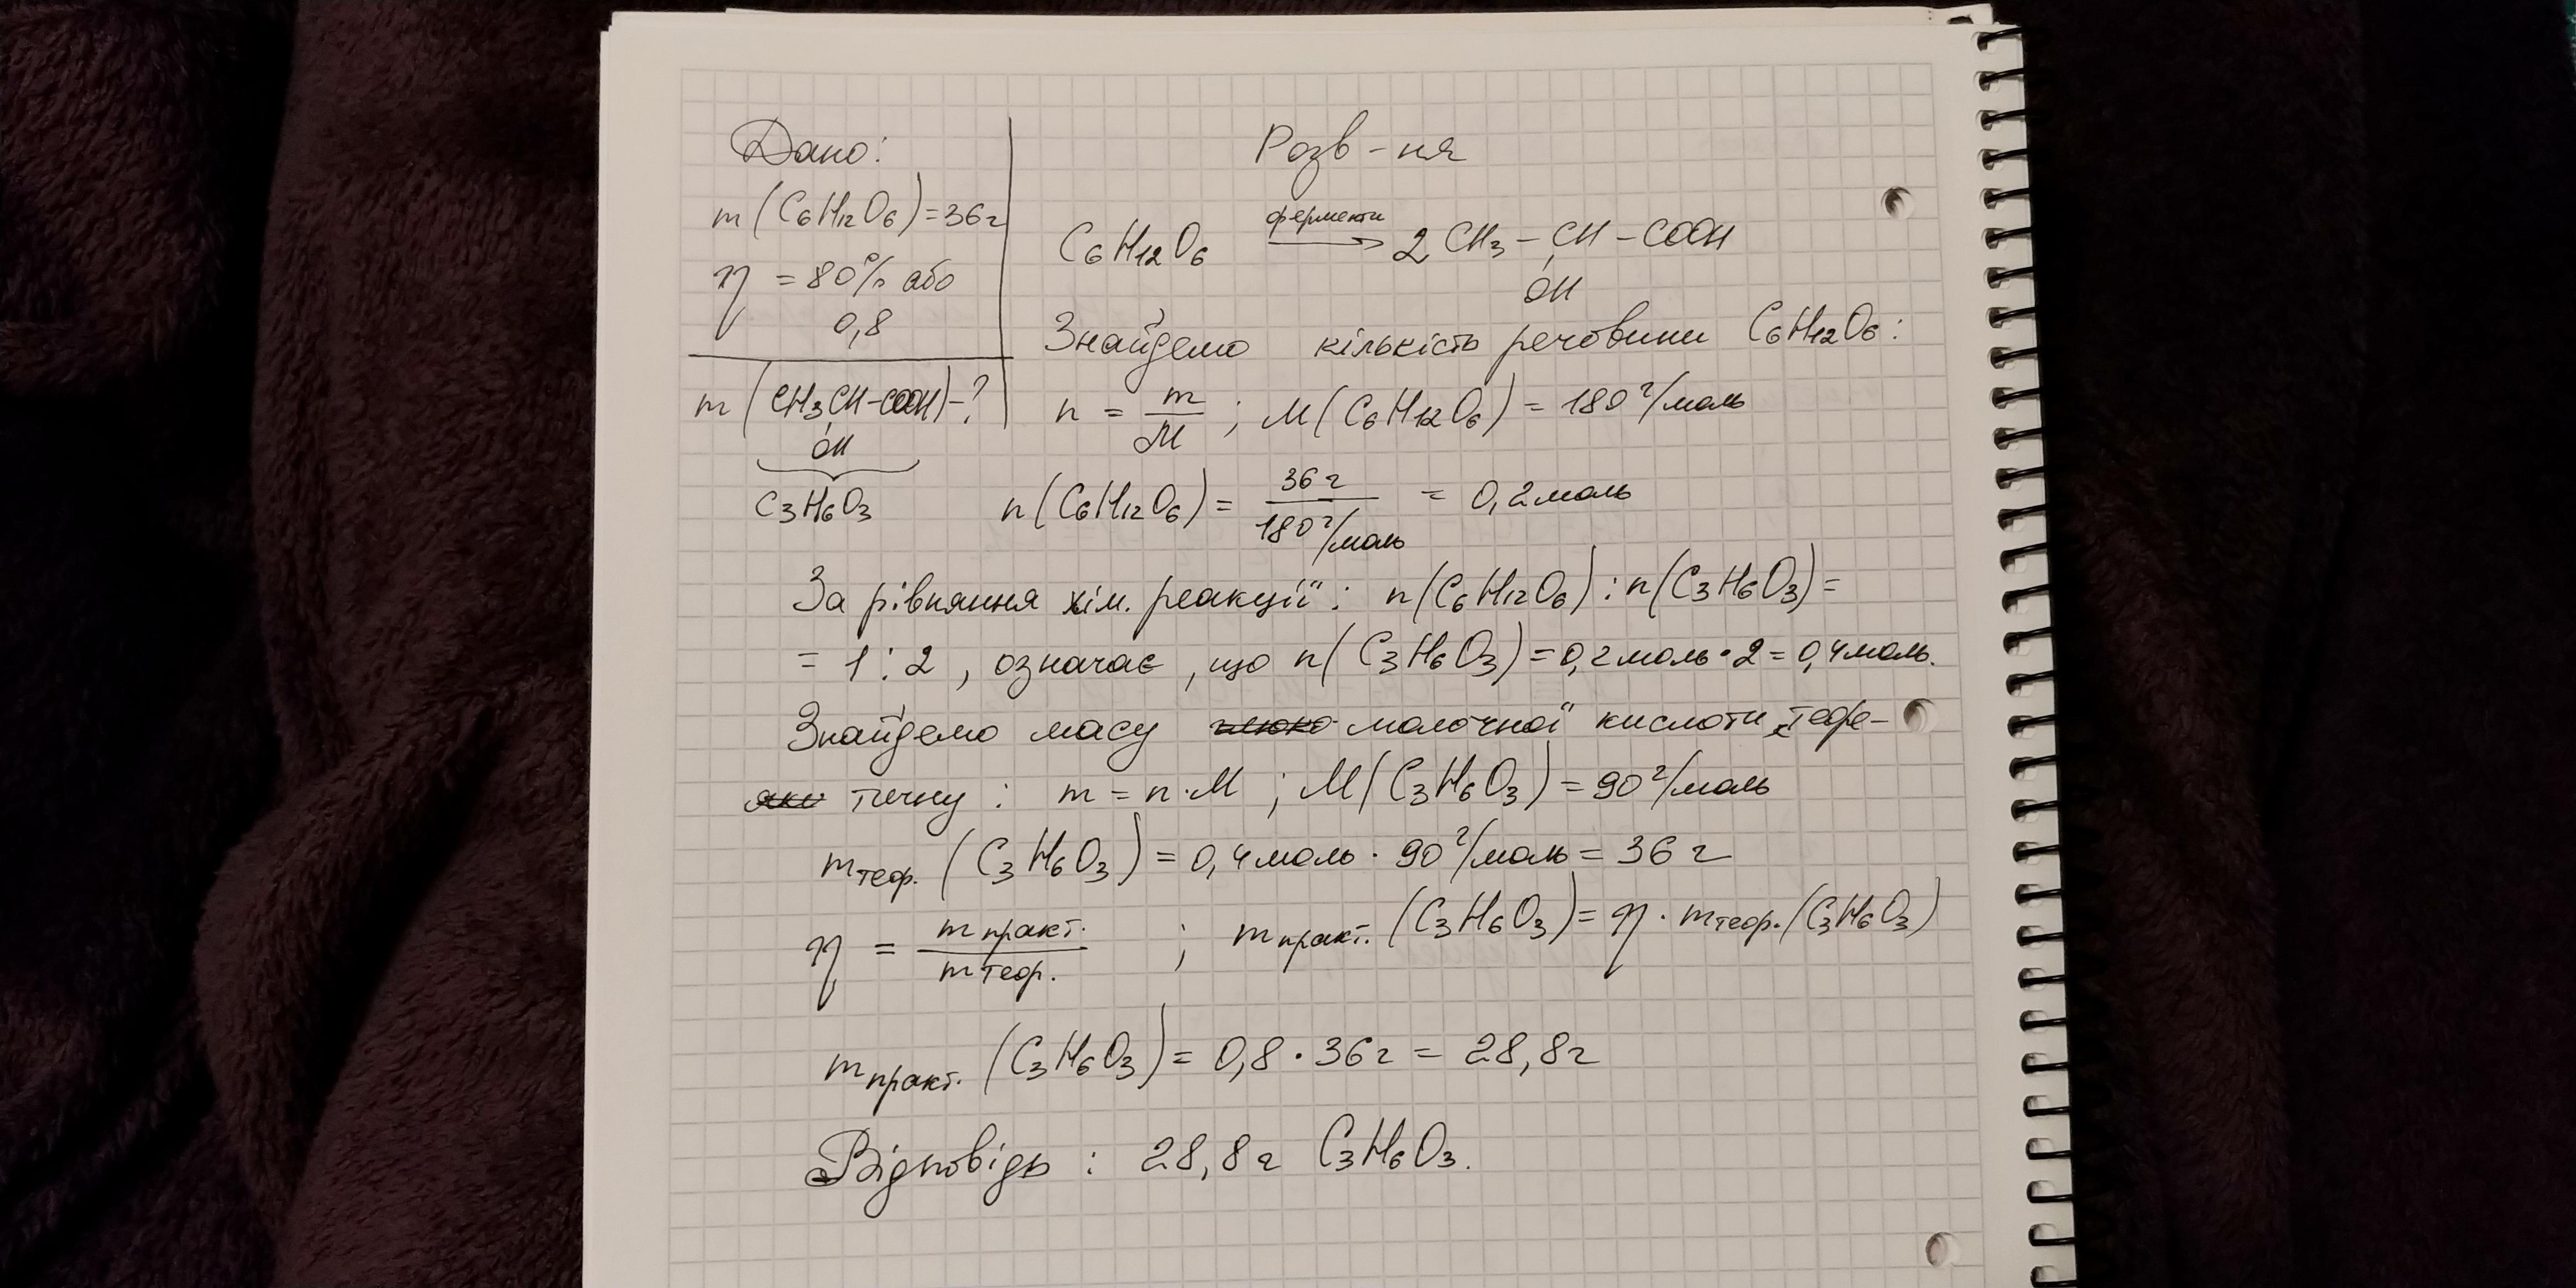 Дано:
m(C₆H₁₂O₆)=36г
η = 80% або
0,8
m(CH₃CH-COOH)-?
OH
C₃H₆O₃
Розв-ня
C₆H₁₂O₆ ферменти → 2 CH₃ – CH – COOH
OH
Знайдемо кількість речовини C₆H₁₂O₆:
n = m/M ; M(C₆H₁₂O₆) = 180 г/моль
n(C₆H₁₂O₆) = 36 г / 180 г/моль = 0,2 моль
За рівняння хім. реакції: n(C₆H₁₂O₆) : n(C₃H₆O₃) =
= 1 : 2 , означає , що n(C₃H₆O₃) = 0,2 моль · 2 = 0,4 моль.
Знайдемо масу молочної кислоти, теоре-
тичну : m = n · M ; M(C₃H₆O₃) = 90 г/моль
mтеор. (C₃H₆O₃) = 0,4 моль · 90 г/моль = 36 г
η = mпракт. / mтеор. ; mпракт. (C₃H₆O₃) = η · mтеор. (C₃H₆O₃)
mпракт. (C₃H₆O₃) = 0,8 · 36 г = 28,8 г
Відповідь : 28,8 г C₃H₆O₃.